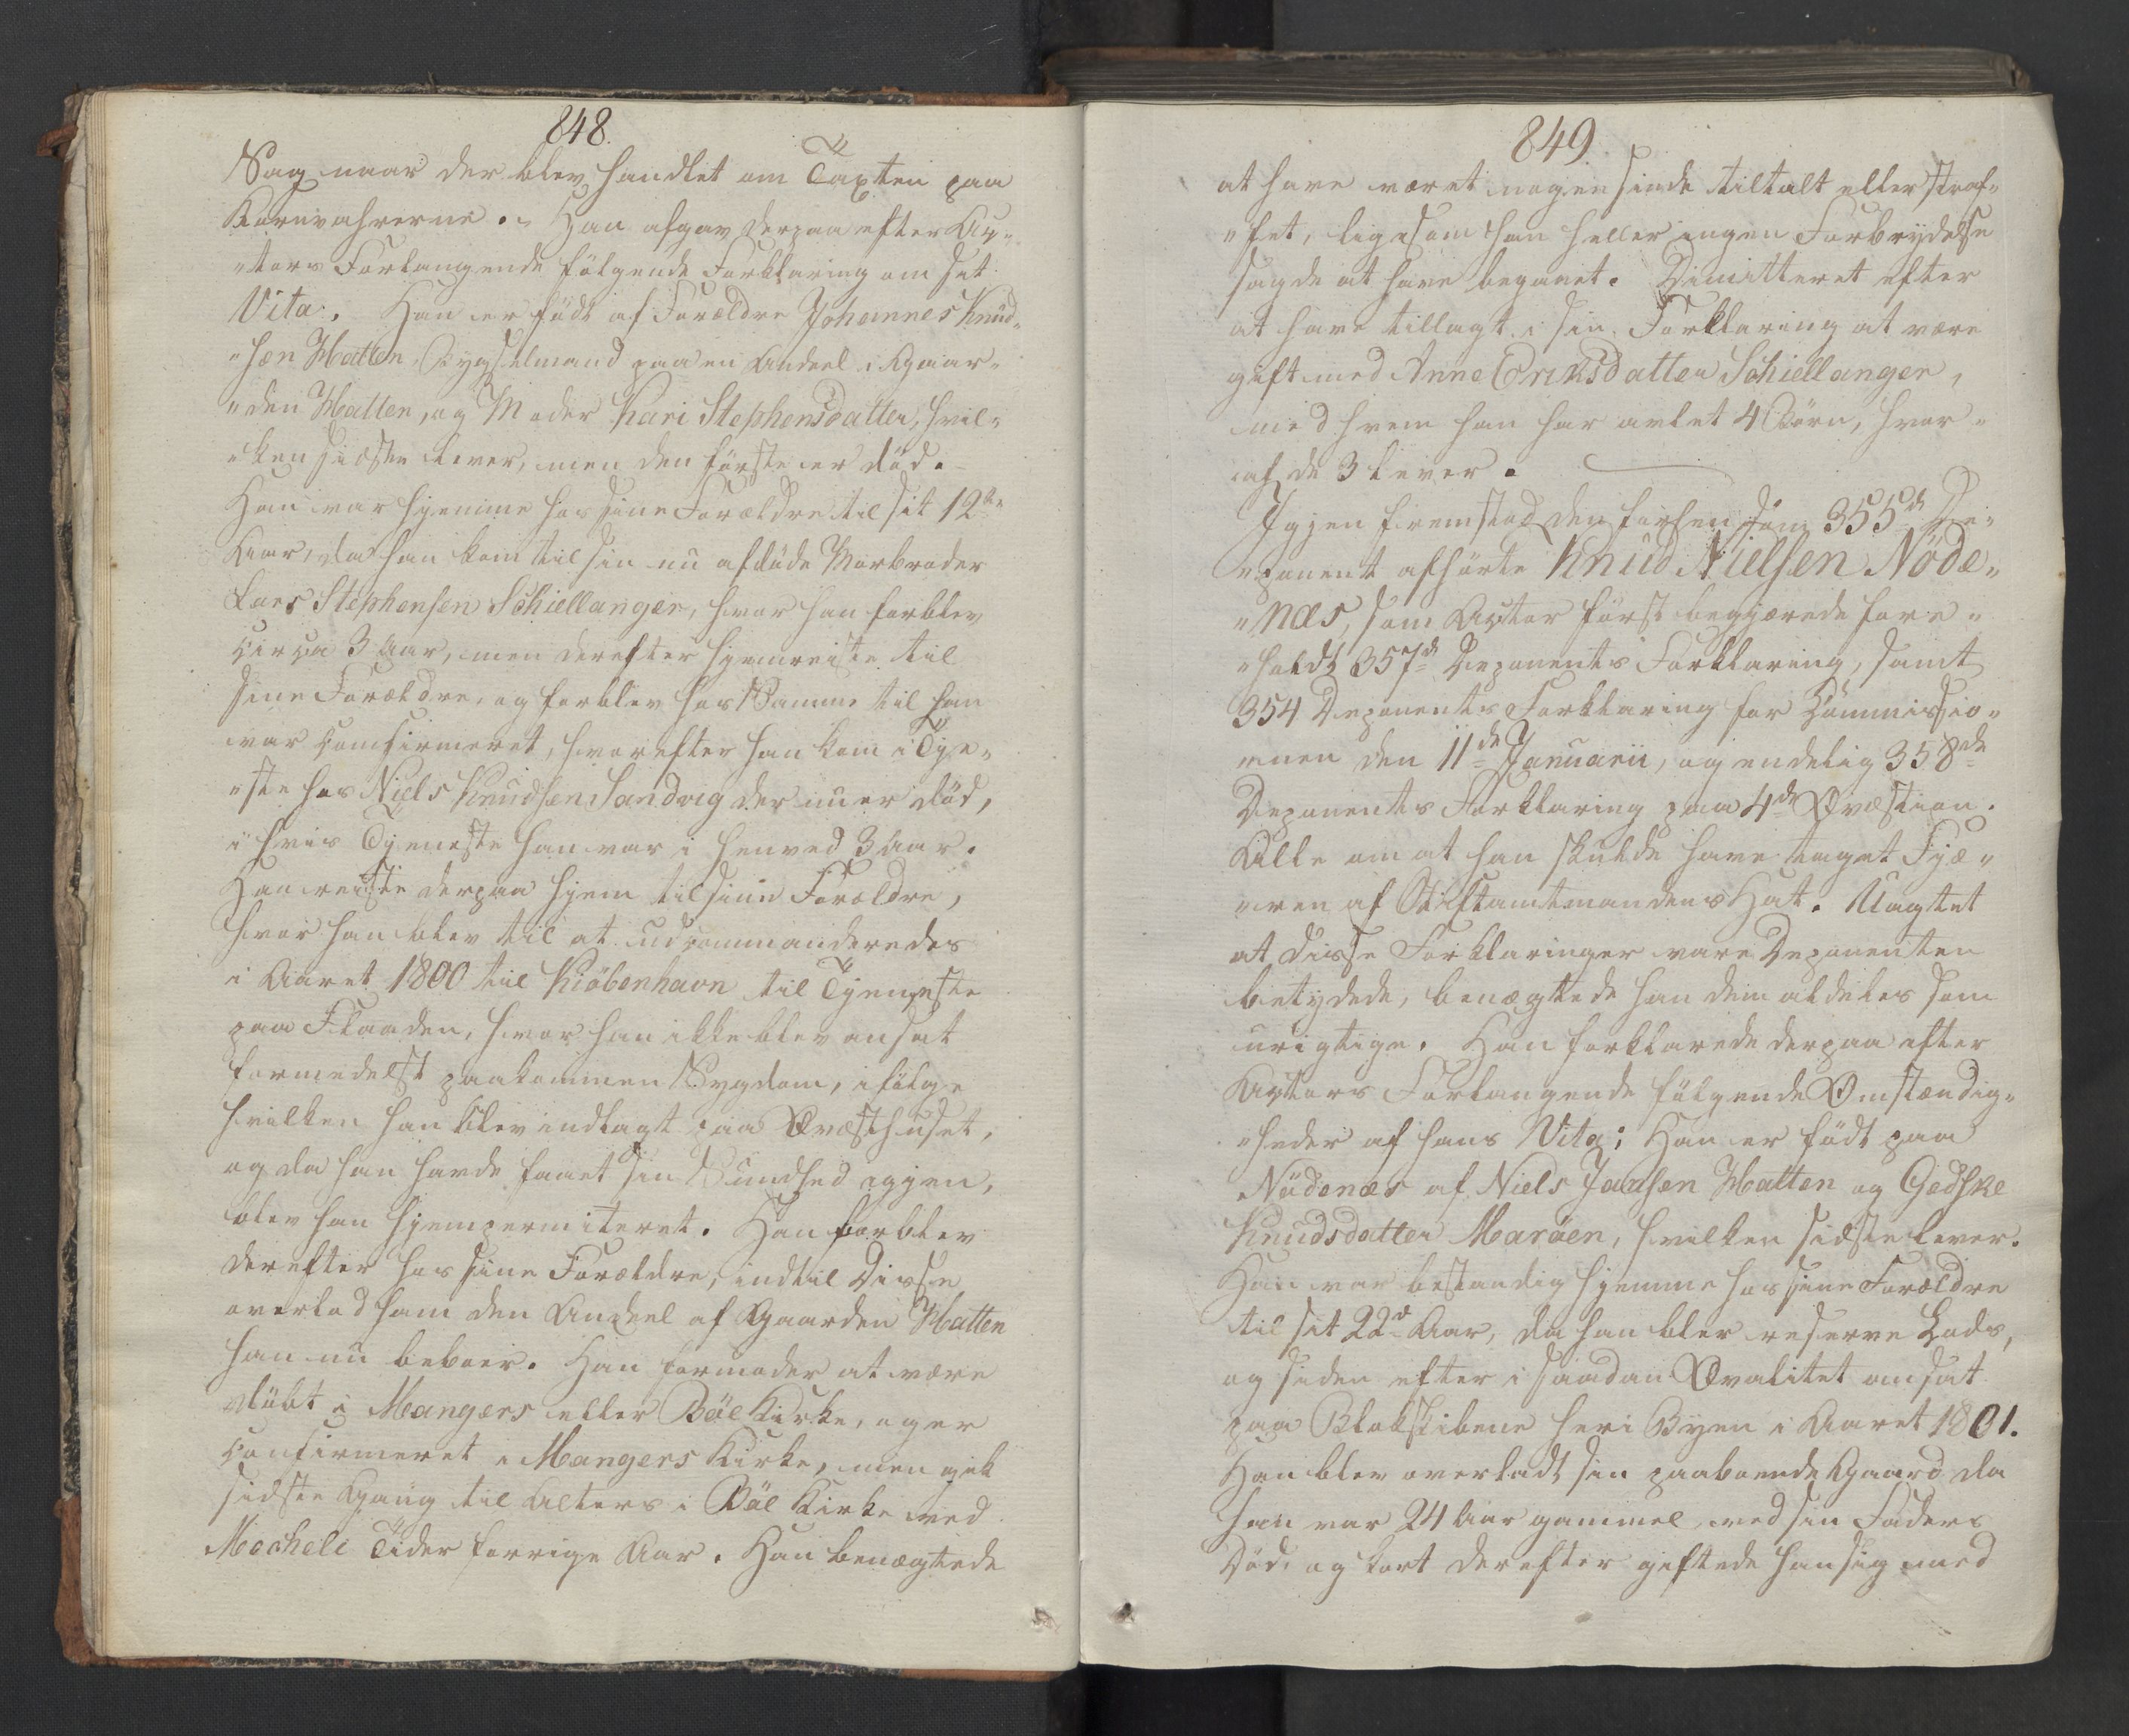 848.
Sag naar der blev handlet om Taxten paa
Kornvahrerne. Han afgav derpaa efter Ac„
„tors Forlangende følgende Forklaring om sit
Vita. Han er født af Forældre Johannes Knud„
„sen Hatten, Bygselmand paa en Andeel i Gaar„
„den Hatten, og Moder Kari Stephensdatter, hvil„
„ken sidste lever, men den første er død.
Han var hjemme hos sine Forældre til sit 12te
Aar, da han kom til sin nu afdøde Morbroder
Lars Stephensen Schiellanger, hvor han forblev
circa 3 Aar, men derefter hjemreiste til
sine Forældre, og forblev hos Samme til han
var confirmeret, hvorefter han kom i Tje„
„ste hos Niels Knudsen Sandvig der nu er død,
i hvis Tjeneste han var i henved 3 Aar.
Han reiste derpaa hjem til sine Forældre,
hvor han blev til at udcommanderedes
i Aaret 1800 til Kiöbenhavn til Tjeneste
paa Flaaden, hvor han ikke blev ansat
formedelst paakommen Sygdom, ifølge
hvilken han blev indlagt paa Qvæsthuset,
og da han havde faaet sin Sundhed igjen,
blev han hjempermiteret. Han forblev
derefter hos sine Forældre, indtil Disse
overlod ham den Andeel af Gaarden Hatten
han nu beboer. Han formoder at være
døbt i Mangers eller Bøe Kirke, og er
confirmeret i Mangers Kirke, men gik
sidste Gang til Alters i Bøe Kirke ved
Mecheli Tider forrige Aar. Han benægtede
849.
at have været nogensinde tiltalt eller straf„
„fet, ligesom han heller ingen Forbrydelse
sagde at have begaaet. Dimitteret efter
at have tillagt i sin Forklaring at være
gift med Anne Eriksdatter Schiellanger,
med hvem han har avlet 4 Børn, hvor„
af de 3 lever.
Igjen fremstod den forhen som 355de De„
„ponent afhørte Knud Nielsen Nöde„
„næs, som Actor først begjærede fore„
„holdt 357de Deponents Forklaring, samt
354 Deponents Forklaring for Commissio„
nen den 11de Januarii, og endelig 358de
Deponents Forklaring paa 4de Qvæstion.
Alle om at han skulde have taget Fjæ„
„ren af Stiftamtmandens Hat. Uagtet
at disse Forklaringer vare Deponenten
betydede, benægtede han dem aldeles som
urigtige. Han forklarede derpaa efter
Actors Forlangende følgende Omstændig„
„heder af hans Vita; Han er født paa
Nødenæs af Niels Jansen Hatten og Gedske
Knudsdatter Maröen, hvilken sidste lever.
Han var bestandig hjemme hos sine Forældre
til sit 22de Aar, da han blev reserve Lods,
og siden efter i saadan Qvalitet ansat
paa Blokskibene her i Byen i Aaret 1801.
Han blev overladt sin paaboende Gaard da
han var 24 Aar gammel, ved sin Faders
Død, og kort derefter giftede han sig med